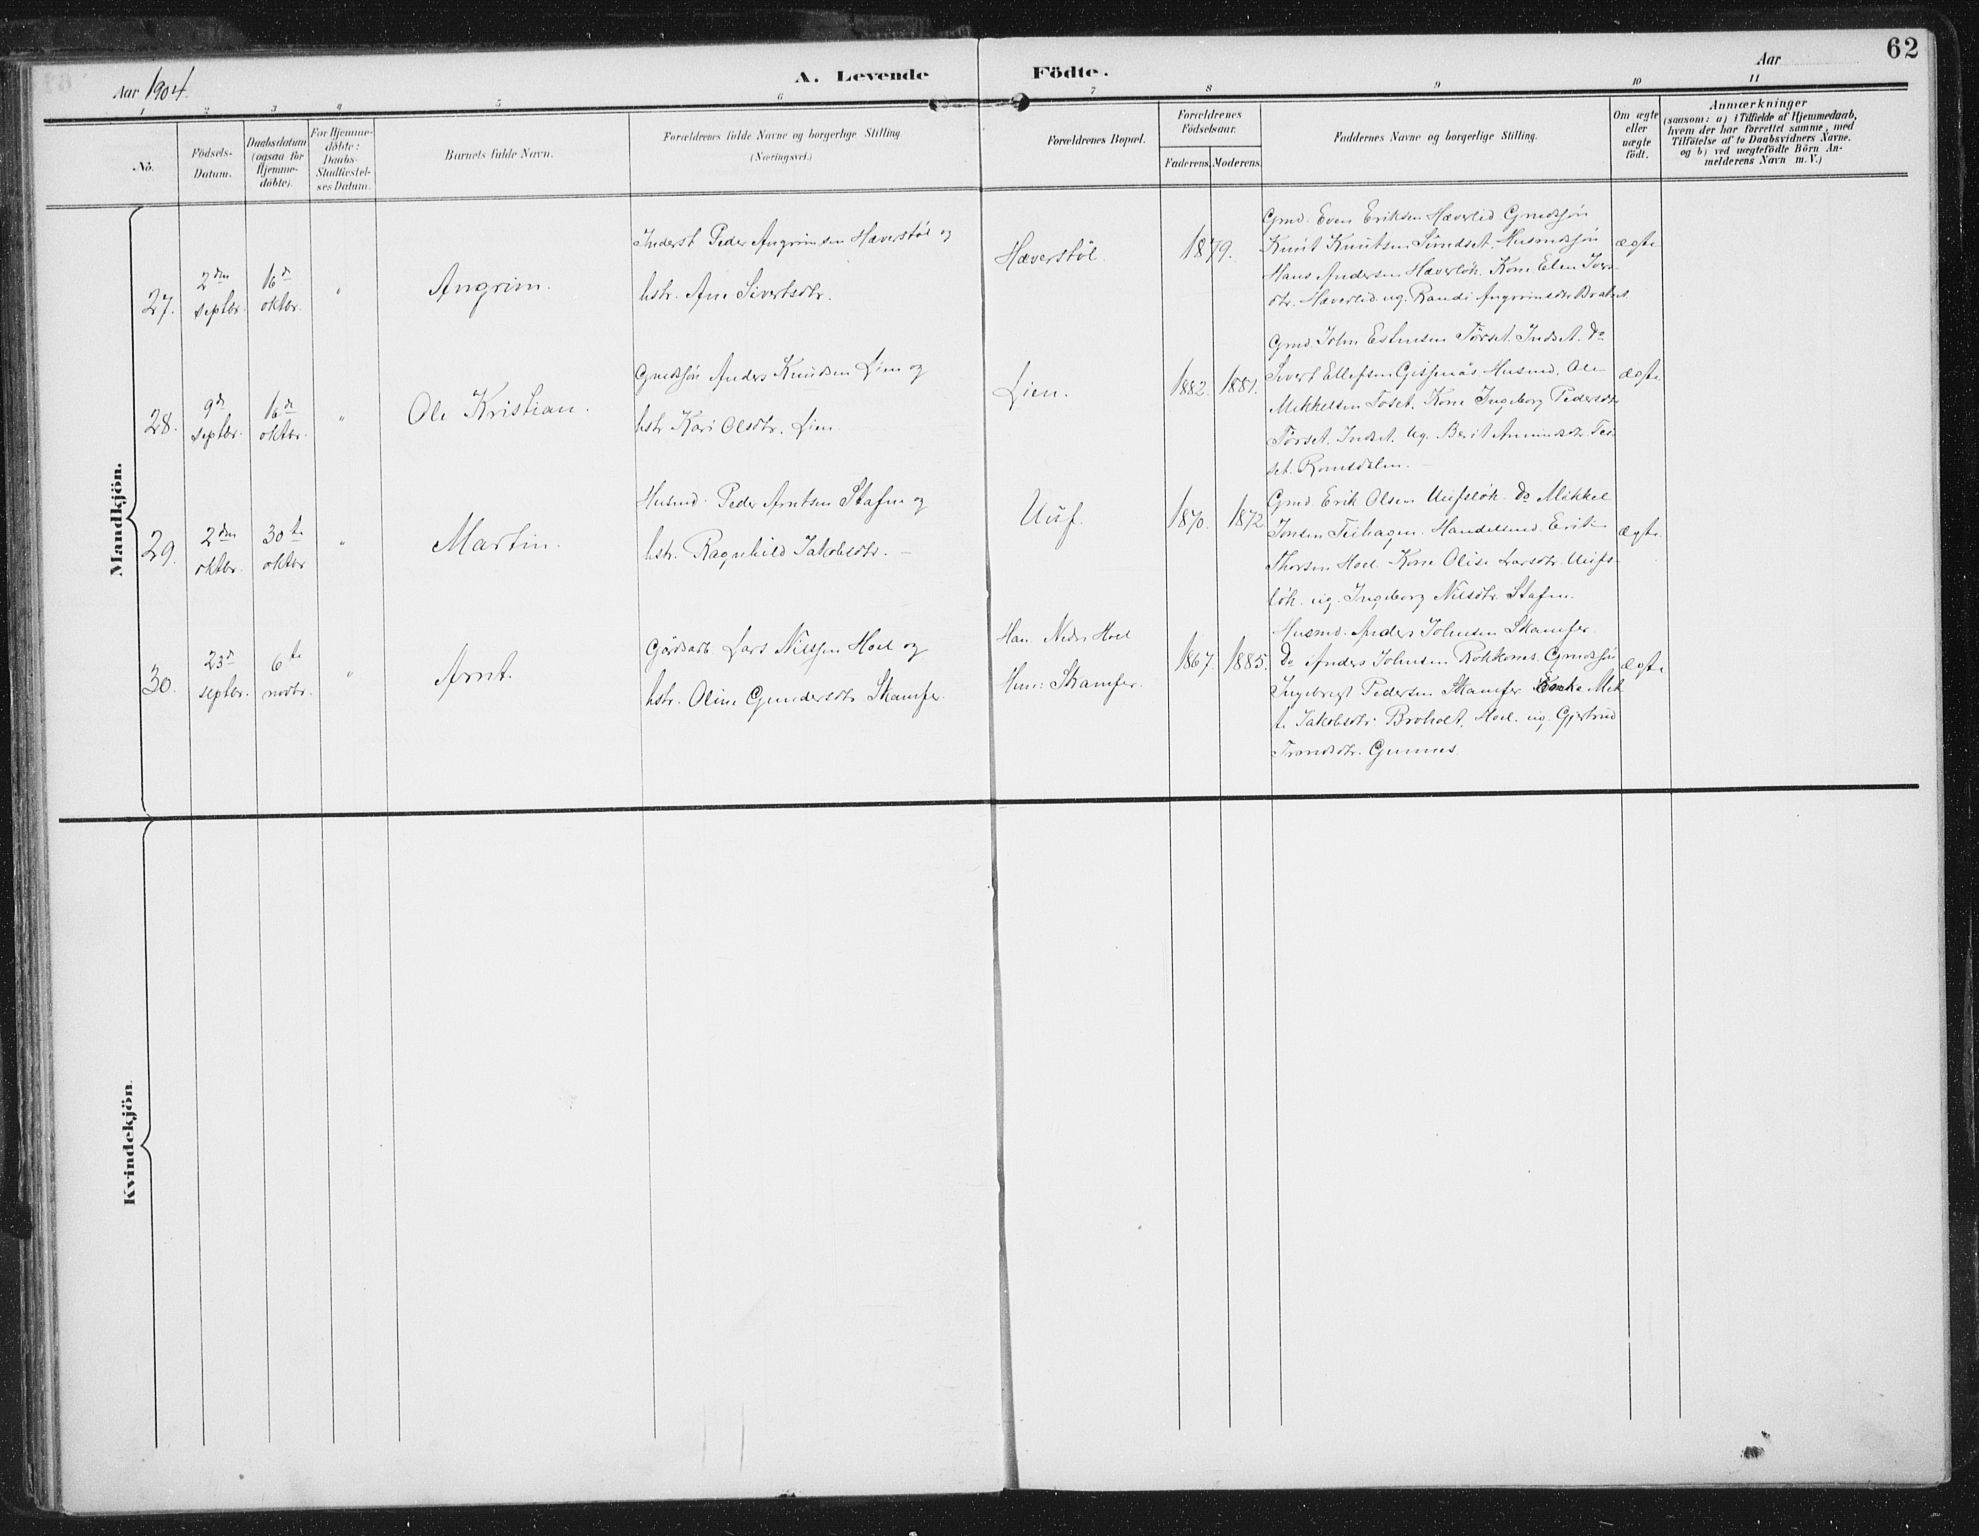 62
Aar 1904.
A. Levende Födte.
Aar
1 2 3 4 5 6 7 8 9 10 11
No.
Födsels-
Datum.
Daabsdatum
(ogsaa for
Hjemme-
döbte).
For Hjemme-
döbte:
Daabs-
Stadfæstel-
ses Datum.
Barnets fulde Navn.
Forældrenes fulde Navne og borgerlige Stilling
(Næringsvei.)
Forældrenes Bopæl.
Forældrenes
Födselsaar.
Faderens. Moderens.
Faddernes Navne og borgerlige Stilling.
Om ægte
eller
uægte
födt.
Anmærkninger
(saasom: a) i Tilfælde af Hjemmedaab,
hvem der har forrettet samme, med
Tilföielse af to Daabsvidners Navne.
og b) ved uægtefödte Börn An-
melderens Navn m. V.)
Mandkjön.
27.
2den
septbr.
16de
oktbr.
"
Angrim.
Inderst Peder Angrimsen Hæverstöl og
hstr. Ane Sivertsdtr.
Hæverstöl.
1879.
Gmd. Even Eriksen Hæverlid Gmdssjön
Knut Knutsen Sundset. Husmdssjön
Hans Andersen Hæverlöh. Kone Elen Iver-
dtr. Hæverlid ug. Randi Angrimsdtr
ægte
28.
9de
septbr.
16de
oktbr.
"
Ole Kristian.
Gmdssjön Anders Knudsen Lien og
hstr Kari Olsdtr. Lien.
Lien.
1882. 1881.
Gmd. John Estensen Törset. Indset. Do
Sivert Ellefsen Gisnäs Husmd. Ole
Mikkelsen Toset. Kone Ingeborg Pedersdtr
Törset. Indset. ug. Berit Amundsdtr
set. Romsdalen. –
ægte
29.
2den
oktbr.
30te
oktbr
"
Martin.
Husmd. Peder Arntsen Stafne og
hstr. Ragnhild Jakobsdtr. –
Uuf.
1870. 1872
Gmd. Erik Olsen Uufslöh. Do Mikkel
Jonsen Teihagen. Handelsmd. Erik
Thorsen Hoel Kone Olise Larsdtr. Uufs-
löh. ug. Ingeborg Nilsdtr. Stafne.
ægte.
30.
23de
septbr.
6te
novbr.
"
Arnt.
Gårdsarb. Lars Nilssen Hoel og
hstr. Oline Gundersdtr Skamfer.
Han: Nedre Hoel
Hun: Skamfer.
1867. 1885.
Husmd. Anders Johnsen Skamfer.
Do Anders Johnsen Rokkones Gmdssjön
Ingebrigt Pedersen Skamfer Enke Met
te Jakobsdtr. Broholt, Hoel. ug. Gjertrud
Trondsdtr. Gunnes.
ægte
Kvindekjön.